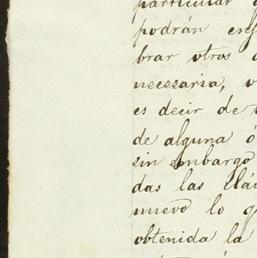 particular
podrán
brar otros
necesaria,
es decir de
de alguna ó
sin embargo
das las
nuevo lo
obtenida la